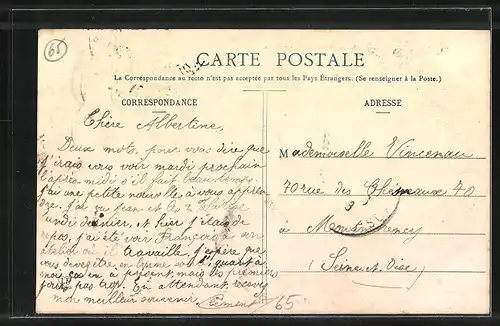 65
CARTE POSTALE
La Correspondance au recto n'est pas acceptée par tous les Pays Étrangers. (Se renseigner à la Poste.)
CORRESPONDANCE
ADRESSE
Chère Albertine,
Deux mots pour vous dire que
j'irais vous voir mardi prochain
l'après-midi s'il fait beau temps.
J'ai une petite nouvelle à vous appren
dre. J'ai vu Jean et les 2
lundi dernier, et hier j'étais de
repos, j'ai été voir François à son
atelier où il travaille, j'espère que
vous devez être en bonne santé, quant à
moi ça va à présent, mais les premiers
jours pas trop. En attendant, recevez
mon meilleur souvenir. Clément
Mademoiselle Vincenau
70 rue des 70
à Montmorency
(Seine et Oise)
65